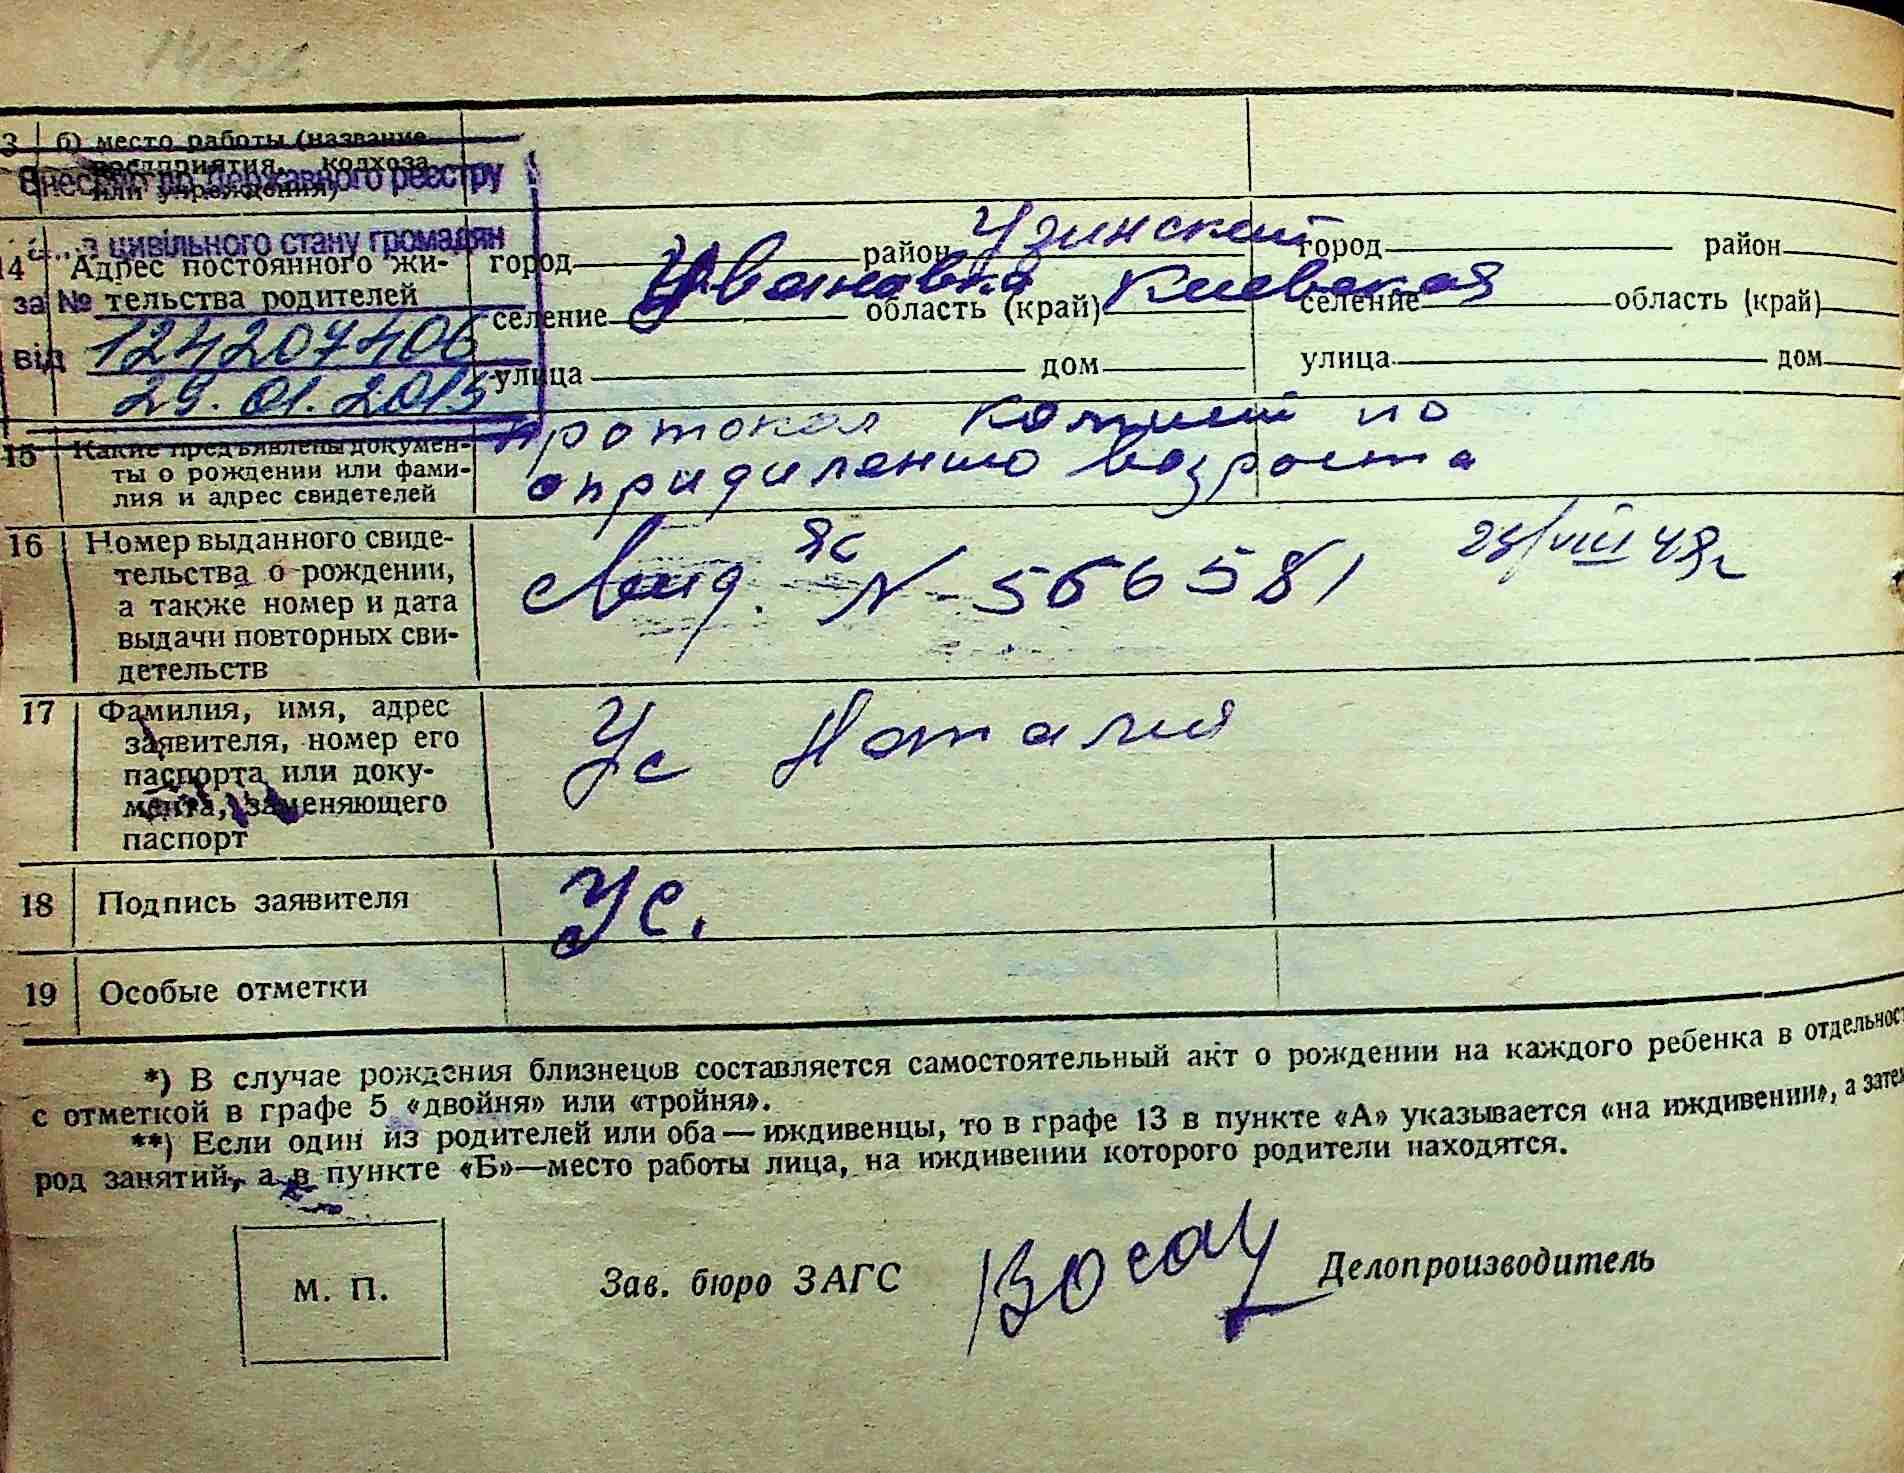 3 б) место работы (название
предприятия, колхоза
или учреждения)
Внесено до Державного реєстру
з цивільного стану громадян
за №
124207406
від 29.01.2015
14 Адрес постоянного жи-
тельства родителей
город район Узинский
селение Ивановка область (край) Киевская
улица дом
город район
селение область (край)
улица дом
15 Какие предъявлены докумен-
ты о рождении или фами-
лия и адрес свидетелей
протокол комисии по
опридилению возроста
16 Номер выданного свиде-
тельства о рождении,
а также номер и дата
выдачи повторных сви-
детельств
ЯС N-566581 VIII 49г
17 Фамилия, имя, адрес
заявителя, номер его
паспорта или доку-
мента, заменяющего
паспорт
Ус Наталия
18 Подпись заявителя
Ус.
19 Особые отметки
*) В случае рождения близнецов составляется самостоятельный акт о рождении на каждого ребенка в отдельност
с отметкой в графе 5 «двойня» или «тройня».
**) Если один из родителей или оба — иждивенцы, то в графе 13 в пункте «А» указывается «на иждивении», а затем
род занятий, а в пункте «Б»—место работы лица, на иждивении которого родители находятся.
М. П.
Зав. бюро ЗАГС Делопроизводитель